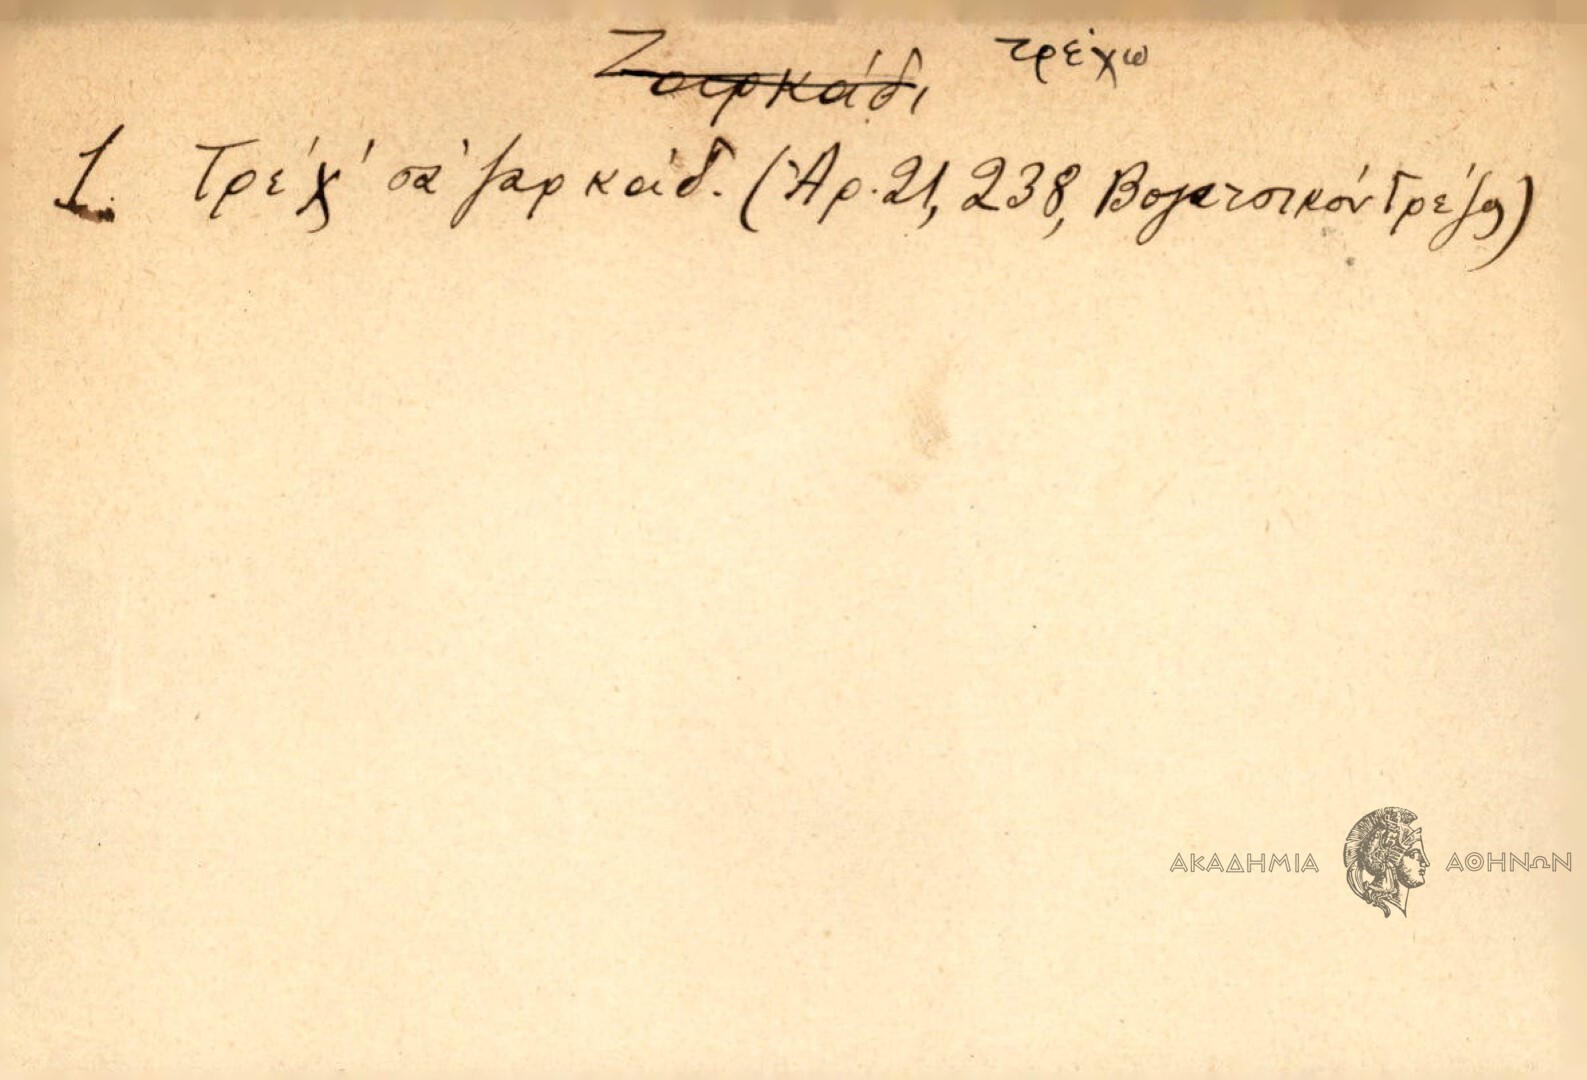 Ζαρκάδι τρέχω
1. Τρέχ' σὰ ζαρκάδ. (Ἀρ. 21, 238, Βογατσικόν Γρέβ)
ΑΚΑΔΗΜΙΑ ΑΘΗΝΩΝ